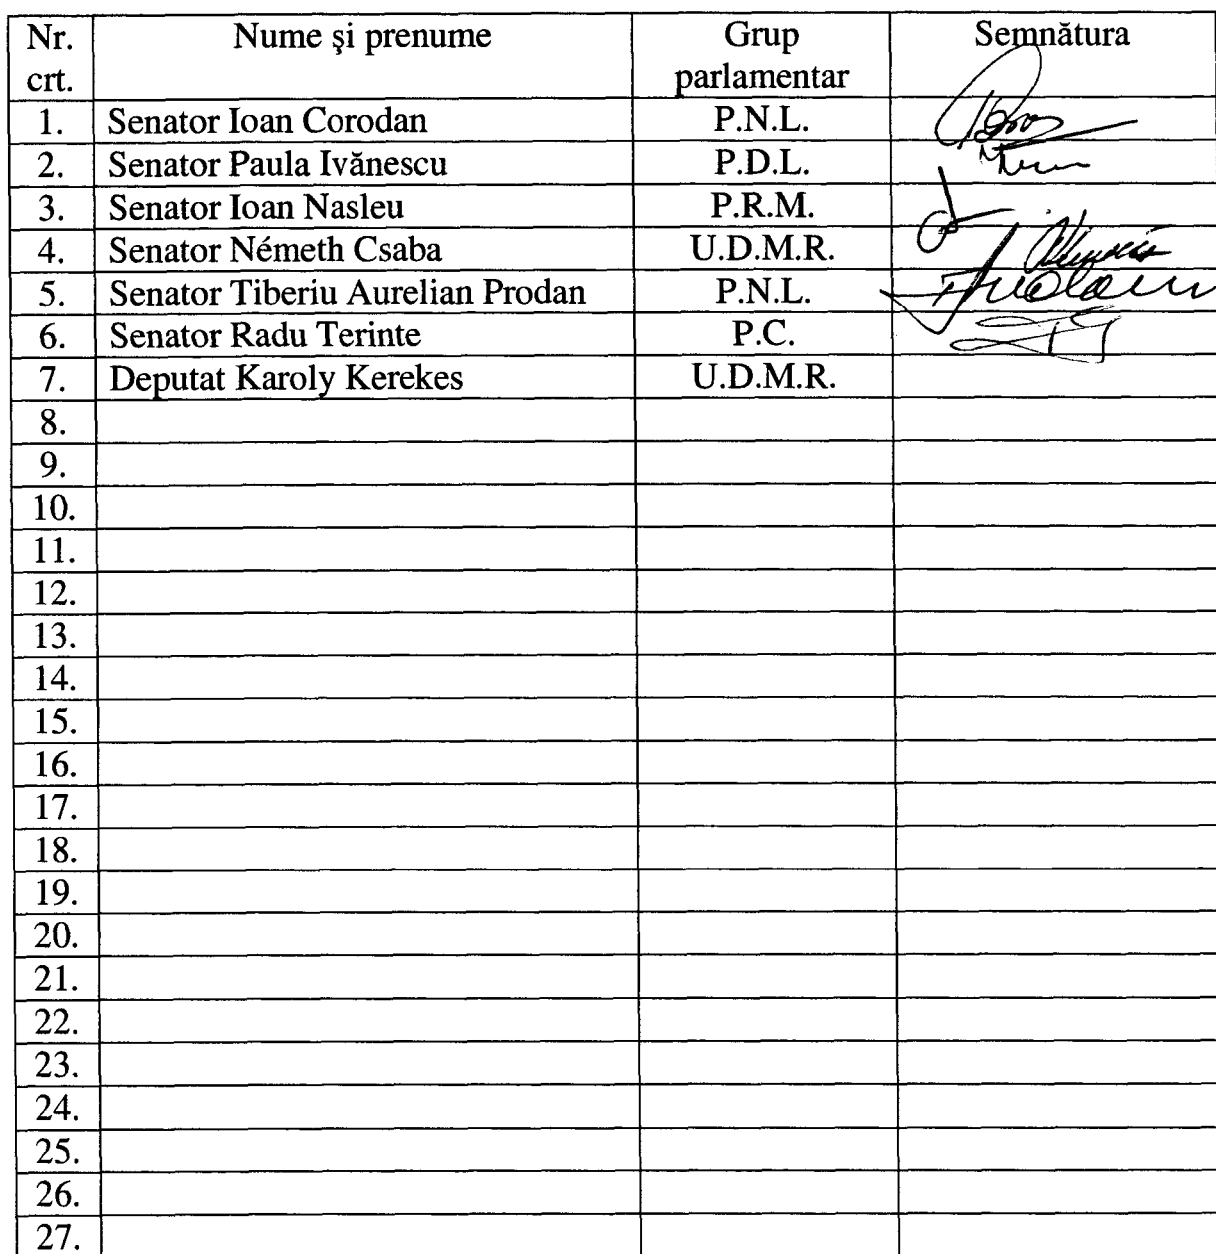 Nr. crt. Nume şi prenume Grup parlamentar Semnătura
1. Senator Ioan Corodan P.N.L.
2. Senator Paula Ivănescu P.D.L.
3. Senator Ioan Nasleu P.R.M.
4. Senator Németh Csaba U.D.M.R.
5. Senator Tiberiu Aurelian Prodan P.N.L.
6. Senator Radu Terinte P.C.
7. Deputat Karoly Kerekes U.D.M.R.
8.
9.
10.
11.
12.
13.
14.
15.
16.
17.
18.
19.
20.
21.
22.
23.
24.
25.
26.
27.